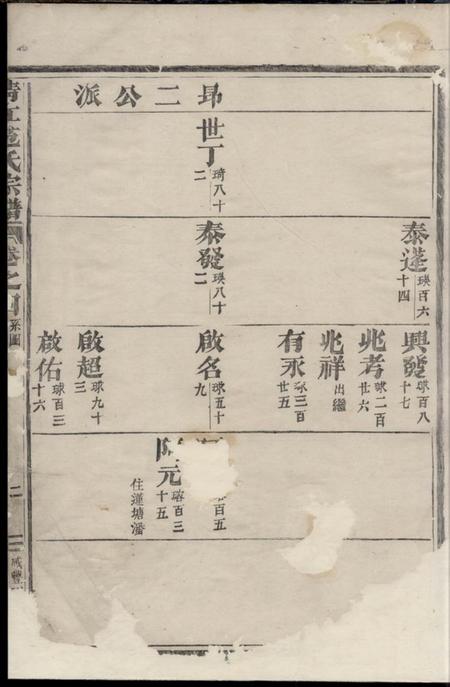 昻二公派
世丁 琦八十二
泰蓬 瑛百六十四
泰發 瑛八十二
興發 球百八十七
兆考 球二百廿六
兆祥 出繼
有承 球三百廿五
啟名 球五十九
啟超 球九十三
啟佑 球百三十六
百五
元 百三十五
住蓮塘潘
氏宗譜
卷之四
系圖
二
咸豐